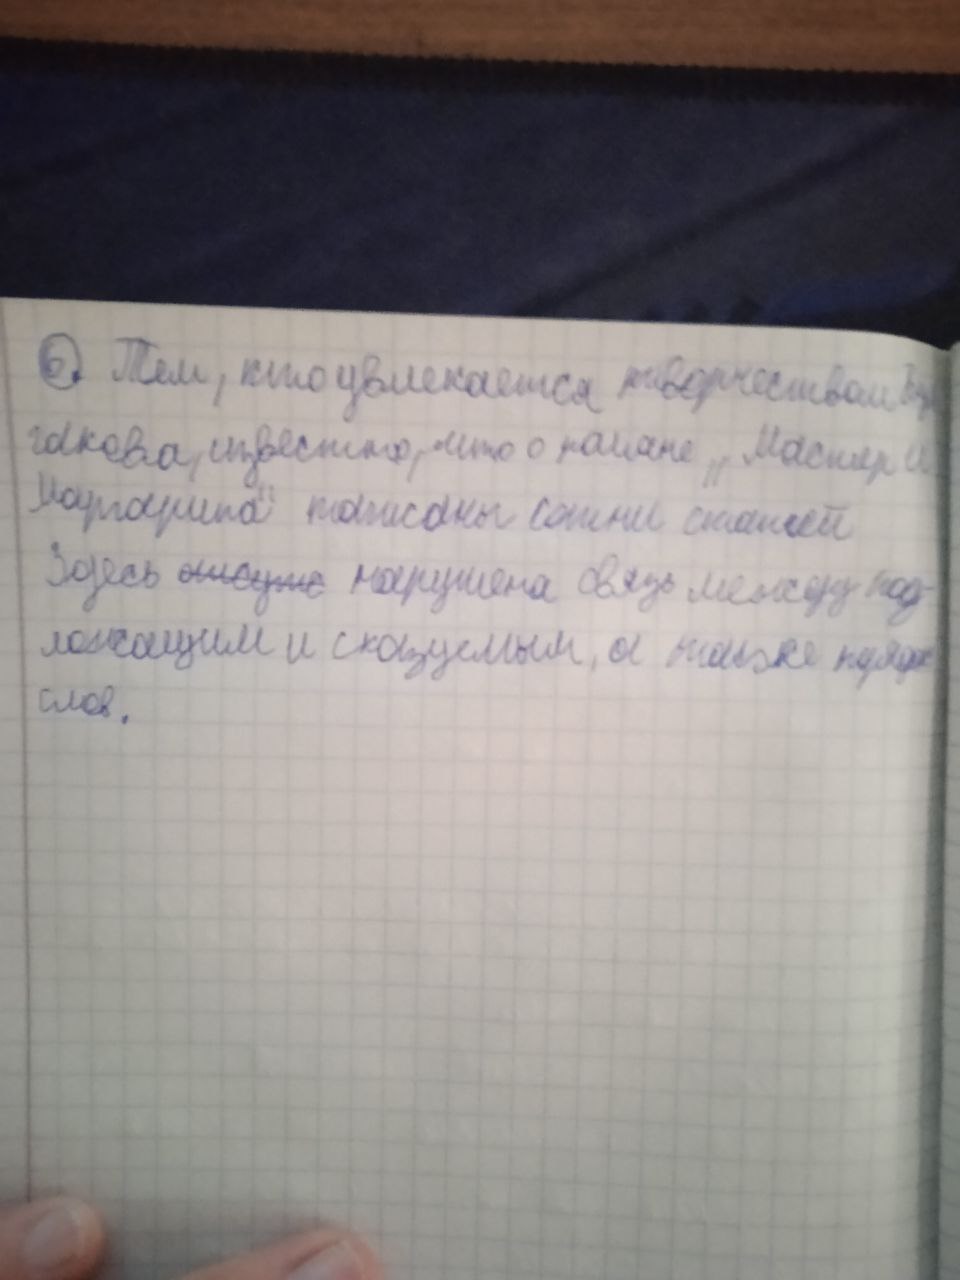 6. Тем, кто увлекается творчеством Бул
гакова, известно, что о романе „Мастер и
Маргарита" написаны сотни статей
Здесь нарушена связь между под-
лежащим и сказуемым, а также порядок
слов.